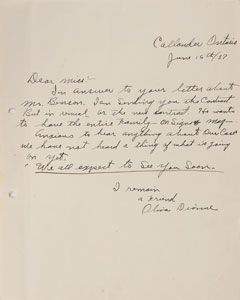 Callander Ontario
June 16th/38
Dear miss:-
In answer to your letter about
Mr. Benson. I am sending you the Contract
But in 
of the new contract. He wants
to have the entire family on 
Anxious to hear anything about Our Case
We have not heard a thing of what is going
on yet.
We all expect to See you Soon.
I remain
a friend
Oliva Dionne